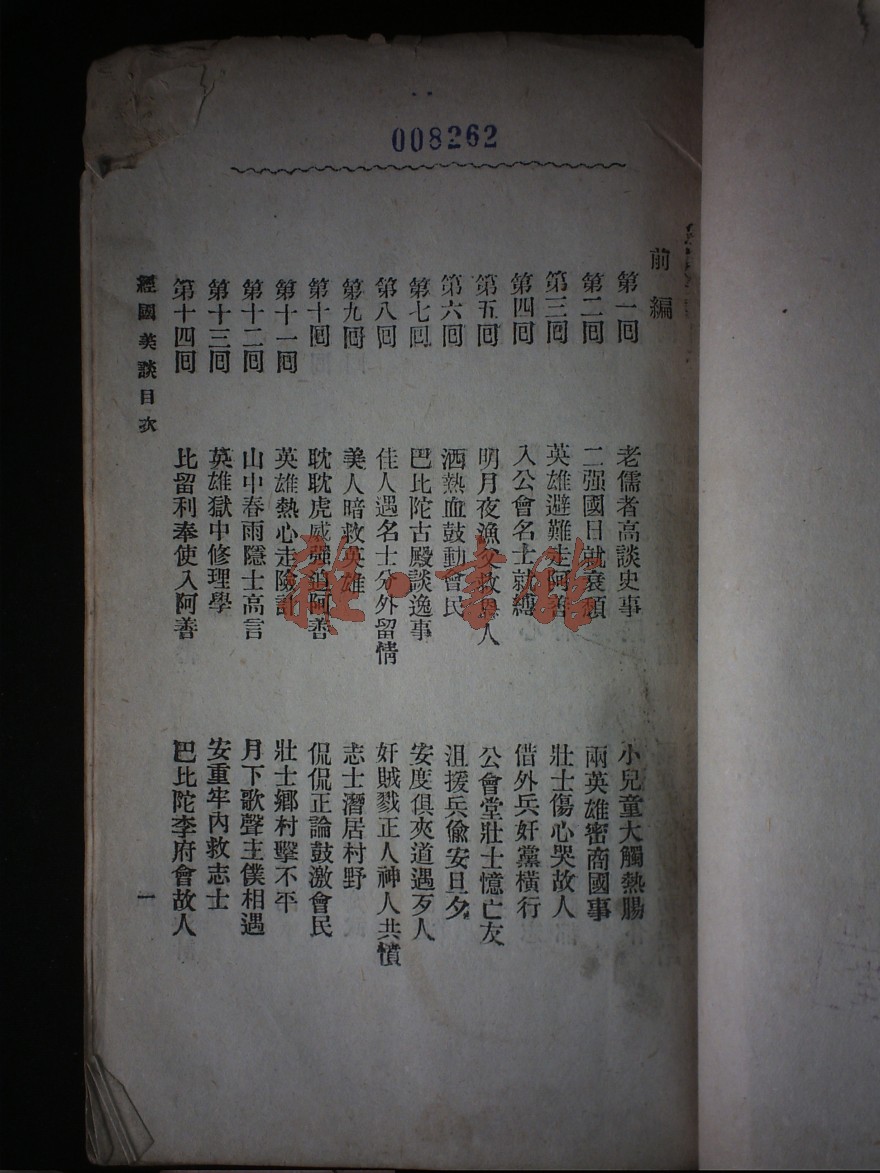 008262
前編
第一囘 老儒者高談史事 小兒童大觸熱腸
第二囘 二强國日就衰頹 兩英雄密商國事
第三囘 英雄避難走阿善 壯士傷心哭故人
第四囘 入公會名士就縛 借外兵奸黨橫行
第五囘 明月夜漁父救異人 公會堂壯士憶亡友
第六囘 洒熱血鼓動會民 沮援兵偸安旦夕
第七囘 巴比陀古殿談逸事 安度俱夾道遇歹人
第八囘 佳人遇名士分外留情 奸賊戮正人神人共憤
第九囘 美人暗救英雄 志士潛居村野
第十囘 耽耽虎威强迫阿善 侃侃正論鼓激會民
第十一囘 英雄熱心走險計 壯士鄉村擊不平
第十二囘 山中春雨隱士高言 月下歌聲主僕相遇
第十三囘 英雄獄中修理學 安重牢內救志士
第十四囘 比留利奉使入阿善 巴比陀李府會故人
經國美談目次
一
雜·書館